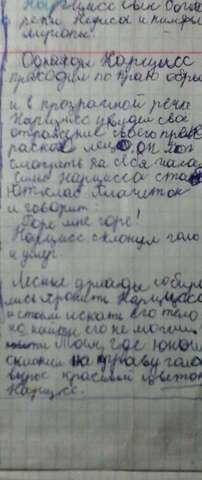 Нарцисс сын бога
реки Кефиса и нимфы
лириопы.
Однажды Нарцисс
проходил по краю обры
и в прозрачной реке
Нарцисс увидел сво
отражение своего прек
расного лица он
смотреть на себя
силы Нарцисса
и говорит
Горе мне горе!
Нарцисс склонул голо
и умер.
Лесные дриады собира
лись хронить Нарцисса
и стали искать его тело
но найти его не могли
Там, где юнош
склонил на траву голо
вырос красивый цветок
Нарцисс.